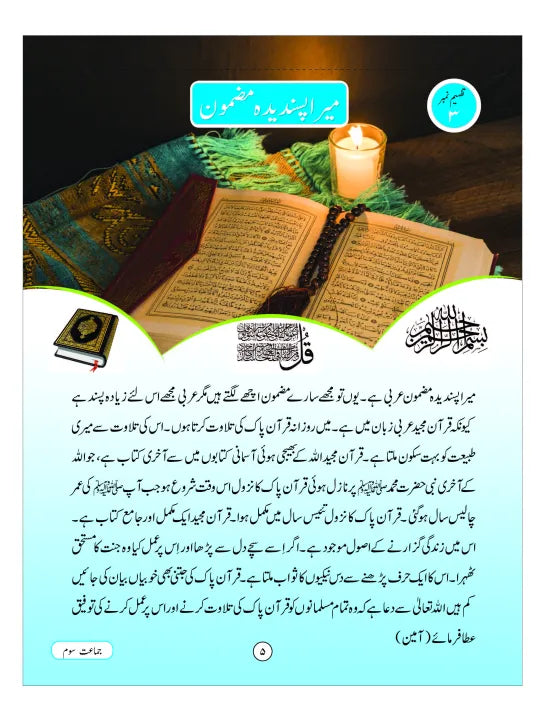 تفہیم نمبر
۳
میرا پسندیدہ مضمون
بسم اللہ الرحمن الرحیم
قُل
میرا پسندیدہ مضمون عربی ہے۔ یوں تو مجھے سارے مضمون اچھے لگتے ہیں مگر عربی مجھے اس لئے زیادہ پسند ہے
کیونکہ قرآن مجید عربی زبان میں ہے۔ میں روزانہ قرآن پاک کی تلاوت کرتا ہوں۔ اس کی تلاوت سے میری
طبیعت کو بہت سکون ملتا ہے۔ قرآن مجید اللہ کے بھیجی ہوئی آسمانی کتابوں میں سے آخری کتاب ہے، جو اللہ
کے آخری نبی حضرت محمد ﷺ پر نازل ہوئی قرآن پاک کا نزول اس وقت شروع ہو جب آپ ﷺ کی عمر
چالیس سال ہوگئی۔ قرآن پاک کا نزول تئیس سال میں مکمل ہوا۔ قرآن مجید ایک مکمل اور جامع کتاب ہے۔
اس میں زندگی گزارنے کے اصول موجود ہے۔ اگر اسے سچے دل سے پڑھا اور اس پر عمل کیا وہ جنت کا مستحق
ٹھہرا۔ اس کا ایک حرف پڑھنے سے دس نیکیوں کا ثواب ملتا ہے۔ قرآن پاک کی جتنی بھی خوبیاں بیان کی جائیں
کم ہیں اللہ تعالیٰ سے دعا ہے کہ وہ تمام مسلمانوں کو قرآن پاک کی تلاوت کرنے اور اس پر عمل کرنے کی توفیق
عطا فرمائے (آمین)
۵
جماعت سوم